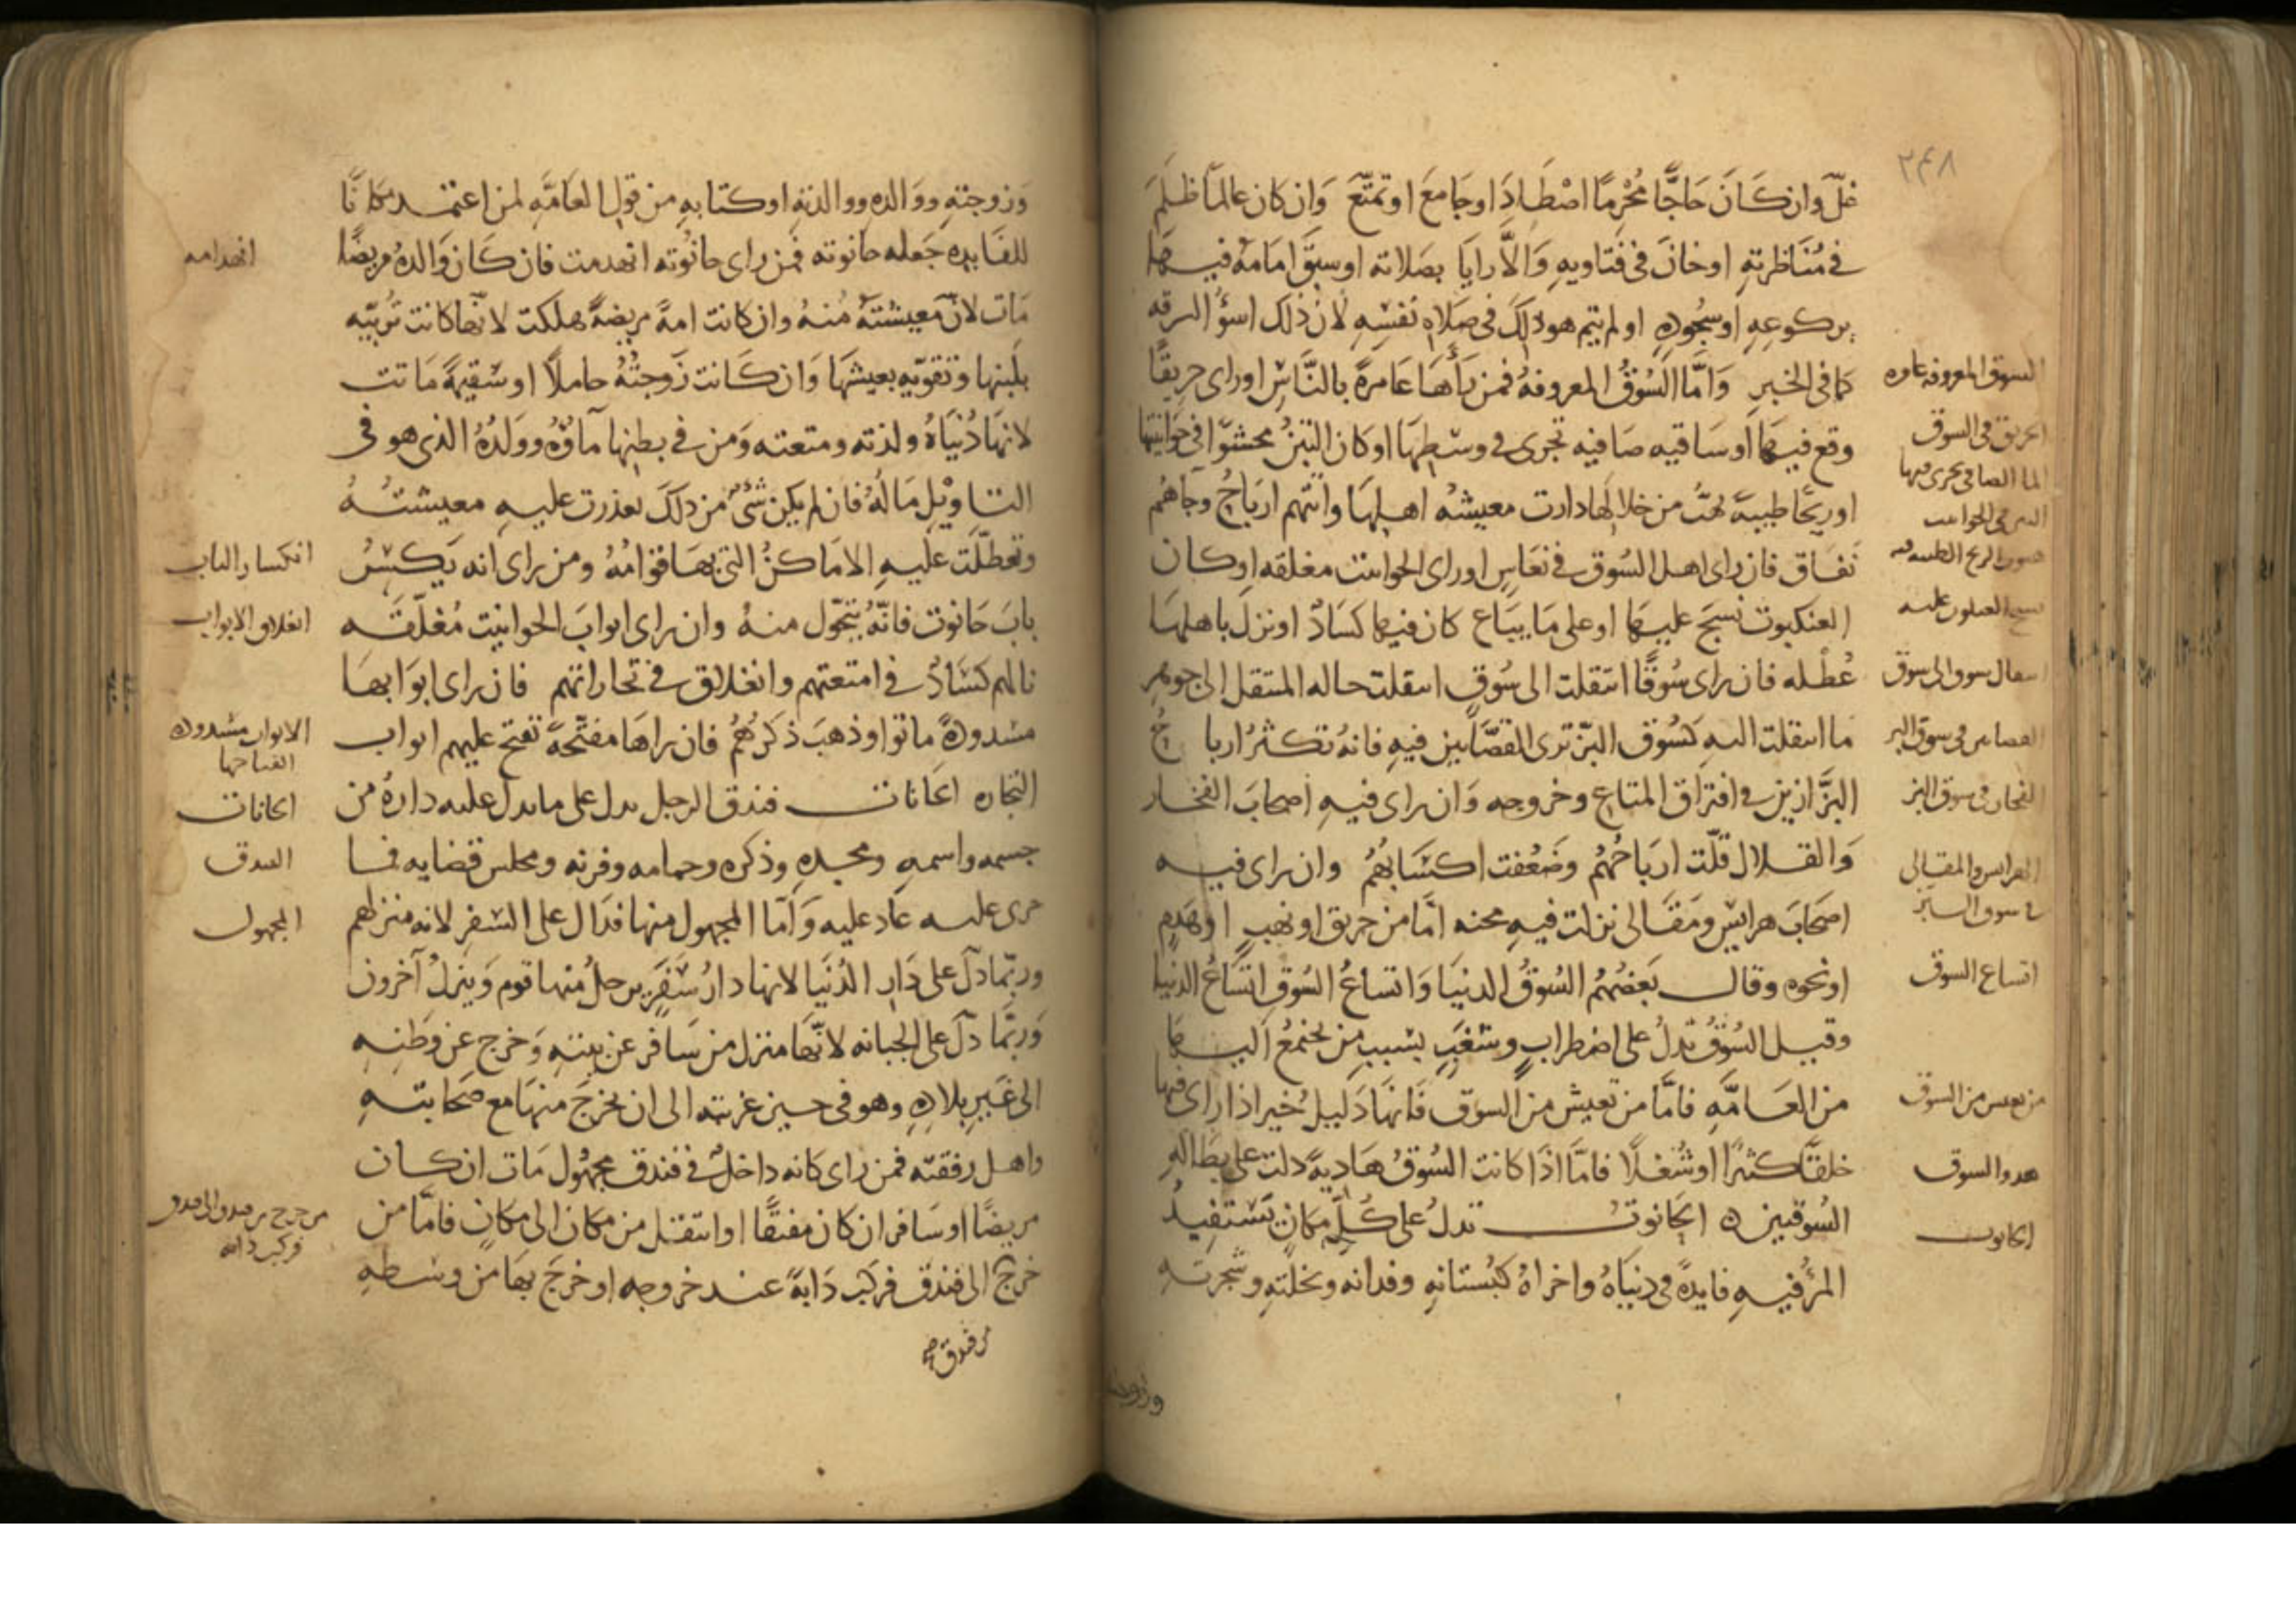 ٢٤٨
غلّ وان كَانَ حَاجًّا مُحْرِمًا اصْطَادَ اوجَامعَ اوتمتّعَ وَان كان عالماً ظلمَ
في مُنَاظرتهِ اوخانَ في فتاويهِ وَالاَّ رايَا بصَلاته اوسبَقَ امَامَهُ فيهَا
بركوعِهِ اوسُجُودهِ اولم يتم هو ذلكَ في صَلاهِ نفسِهِ لانّ ذلك اسوُ السرقه
كما في الخبرِ وَامَّا السُوقُ المعروفهُ فمن رَأهَا عَامرةً بالنَّاسِ اوراى حريقًا
وقع فيهَا اوسَاقيه صَافيه تجرى في وسَطِهَا اوكان التبنُ محشوّا في حَوانيتها
اوريحًا طيبهً تهبُّ من خلالها دارت معيشهُ اهلِهَا واتتهم ارباحُ وجَاهُم
نَفَاق فان راى اهل السُوق في نعَاسٍ اوراى الحوانيت مغلقه اوكان
العنكبوت نسجَ عليهَا اوعلى مَا يبَاع كان فيها كسَادٌ اونزلَ باهلهَا
عُطْله فان راى سُوقًا انتقلت الى سُوقٍ انتقلت حاله المنتقل الى جوهر
ما انتقلت اليهِ كسُوق البزّ ترى القصَّابين فيهِ فانهُ تكثرُ اربا حُ
البزَّازين في افتراق المتاعِ وخروجه وَان راى فيهِ اصحابَ الفخار
وَالقلال قلّت ارباحُهُم وضَعُفت اكسَابُهُم وان راى فيه
اصحَابَ هرايسٍ ومَقَالى نزلت فيهِ محنه امَّا من حريق اونهبٍ اوهَدمٍ
اونحوه وقال بَعضُهُم السُوقُ الدنيَا وَاتساعُ السُوقِ اتسَاعُ الدنيا
وقيل السُوقُ تدلُ على اضطرابٍ وشغبٍ بسببِ من يجتمعُ اليهَا
من العَامَّهِ فامَّا من تعيش من السوق فَانهَا دَليلُ خيرٍ اذا راى فيها
خلقًا كثيرًا اوشُغلًا فامَّا اذَا كانت السُوقُ هَاديهً دلت على بطَاله
السُوقيين ه الحَانوتُ تدلُ على كُلِّ مكانٍ يَستفيدُ
المرُ فيهِ فايدةً في دنيَاهُ واخراهُ كبُستانهِ وفدانه ونخلتهِ وشجرتهِ
السوق المعروفه عامره
الحريق في السوق
الما الصافي يجرى فيها
التبن في الحوانيت
هبوب الريح الطيبه فيه
نسج العنكبوت عليه
انتقال سوق الى سوق
القصابين في سوق البز
الفخار في سوق البز
الهرايس والمقالى
في سوق البز
اتساع السوق
من تعيش من السوق
هدو السوق
الحانوت
وَزوجتهِ ووَالدهِ ووالدتهِ اوكتابهِ من قول العَامَّهِ لمن اعتمد مكانًا
للفَايده جَعله حانوته فمن راى حانُوته انهدمت فان كَانَ وَالدهُ مريضًا
مَات لانّ معيشتهُ مُنهُ وان كانت امهً مريضهً هلكت لانّها كانت تُربّيه
بلَبنِها وتقوّيهِ بعيشهَا وَان كَانت زَوجتُهُ حاملًا اوسَقيمهً مَاتت
لانهَا دُنيَاهُ ولذته ومتعته وَمن في بطنِها مآؤهُ ووَلدُهُ الذى هو في
التاويْلِ مَالُهُ فان لم يكن شَىٌ من ذلكَ تعذرت عليهِ معيشتهُ
وتعطّلَت عليهِ الامَاكنُ التى بهَا قوامُهُ ومن راى انه يَكسِرُ
بابَ حَانوت فانّهُ يتحّول منهُ وان راى ابوابَ الحوانيت مُغلَّقَه
نالهم كسَادٌ في امتعتهم وانغلاق في تجاراتهم فان راى ابوَابهَا
مسدودهً ماتوا وذهبَ ذكرُهُم فان راهَا مفتّحهً تفتح عليهم ابواب
التجاره الخانات فندق الرجل يدل على مايدل عليه دارهُ من
جسمه واسمهِ ومجدهِ وذكره وحمامه وفرنه ومجلس قضايه فما
جرى عليه عَادَ عليه وَامّا المجهول منها فدَال على السَفر لانه منزلهم
وربّما دلّ على دَار الدُنيَا لانها دارُ سَفرٍ يرحلُ منها قوم وَينزلُ آخرون
وَربّما دلّ على الجبانه لانّها منزل من سَافر عن بيتهِ وَخرج عن وطنِهِ
الى غَيرِ بلادهِ وهو في حين غربته الى ان يخرجَ منهَا مع صَحَابتهِ
واهل رفقته فمن راى كانه داخلٌ في فندق مجهُول مَات ان كان
مريضًا اوسَافر ان كان مفيقًا اوانتقل من مكان الى مكانٍ فامَّا من
خرجَ الى فندق فركبَ دَابهً عند خروجه اوخرجَ بهَا من وسطهِ
انهدامه
انكسار الباب
انغلاق الابواب
الابواب مسدوده
انفتاحها
الخانات
الفندق
المجهول
من خرج من فندق الى فندق
فركب دابه